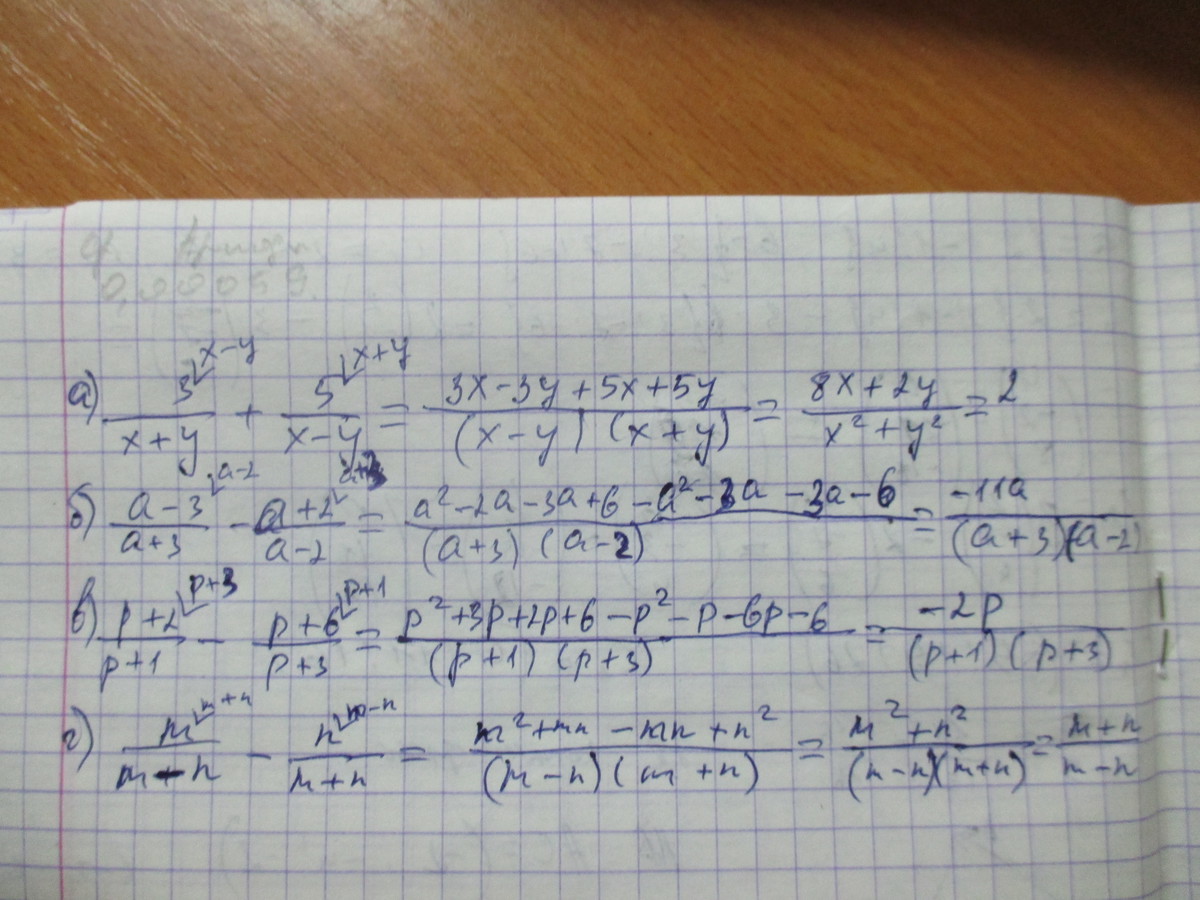 0,00059.
а) 3^{x-y}/(x+y) + 5^{x+y}/(x-y) = (3x-3y+5x+5y)/((x-y)(x+y)) = (8x+2y)/(x²+y²) = 2
б) (a-3)^{a-2}/(a+3) - (a+2)^{a+3}/(a-2) = (a²-2a-3a+6-a²-3a-3a-6)/((a+3)(a-2)) = -11a/((a+3)(a-2))
в) (p+2)^{p+3}/(p+1) - (p+6)^{p+1}/(p+3) = (p²+3p+2p+6-p²-p-6p-6)/((p+1)(p+3)) = -2p/((p+1)(p+3))
г) m^{m+n}/(m-n) - n^{m-n}/(m+n) = (m²+mn-mn+n²)/((m-n)(m+n)) = (m²+n²)/((m-n)(m+n)) = (m+n)/(m-n)